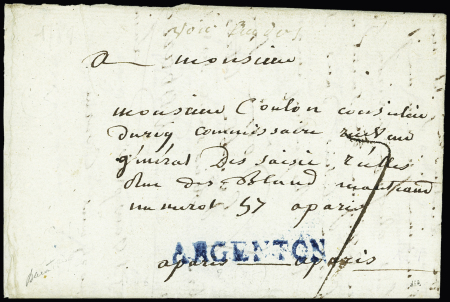 a monsieur
monsieur Coulon conseiller
du roy commissaire
général des saisie réelles
Rue des Bland manteaud
numerot 57 a paris
ARGENTON
a paris a paris